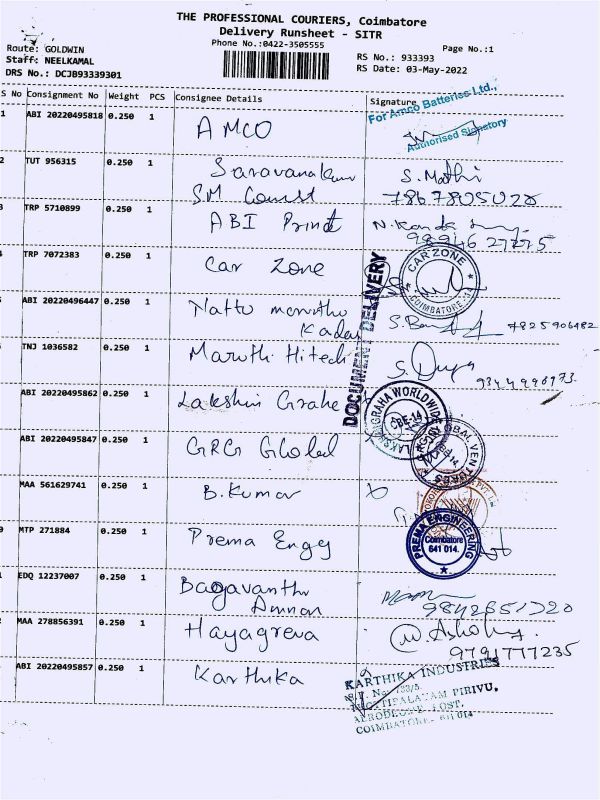 THE PROFESSIONAL COURIERS, Coimbatore
Delivery Runsheet - SITR
Phone No.:0422-3505555
Page No.:1
Route: GOLDWIN
Staff: NEELKAMAL
RS No.: 933393
DRS No.: DCJB93339301
RS Date: 03-May-2022
S No Consignment No Weight PCS Consignee Details Signature
For Amco Batteries Ltd.,
1 ABI 20220495818 0.250 1 AMCO
Authorised Signatory
2 TUT 956315 0.250 1 Saravanakumar S. Mathi
S.M Const 7867805028
3 TRP 5710899 0.250 1 ABI Print
9894627775
TRP 7072383 0.250 1 Car Zone
CAR ZONE
COIMBATORE
DOCUMENT DELIVERY
ABI 20220496447 0.250 1 Nattu
Kadai 7825906482
TNJ 1036582 0.250 1 Maruthi Hitech
ABI 20220495862 0.250 1 Lakshmi Grahe
LAKSHMIGRAHA WORLDWIDE
CBE-14
ABI 20220495847 0.250 1 GRG Global
VENTURES
MAA 561629741 0.250 1 B. Kumar
MTP 271884 0.250 1 Prema Engg
PREMA ENGINEERING
Coimbatore
641 014.
EDQ 12237007 0.250 1 Bagavanthi
Amman
MAA 278856391 0.250 1 Hayagreva
9791777235
ABI 20220495857 0.250 1 Karthika
KARTHIKA INDUSTRIES
PIRIVU,
AERODROME POST,
COIMBATORE, 641 014